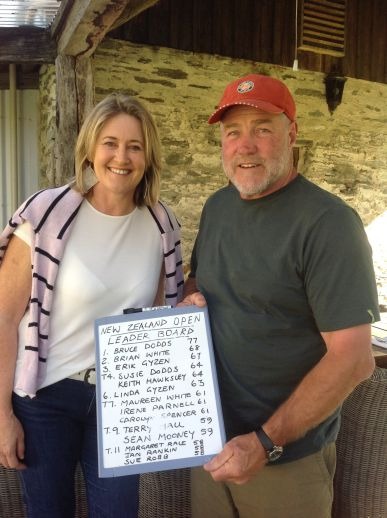 NEW ZEALAND OPEN
LEADER BOARD
1. BRUCE DODDS 77
2. BRIAN WHITE 68
3. ERIK GYZEN 67
T4. SUSIE DODDS 64
KEITH HAWKSLEY 64
6. LINDA GYZEN 63
T7. MAUREEN WHITE 61
IRENE PARNELL 61
CAROLYN SPENCER 61
T.9 TERRY HALL 59
SEAN MOONEY 59
T.11 MARGARET RALE
JAN RANKIN
SUE ROBB